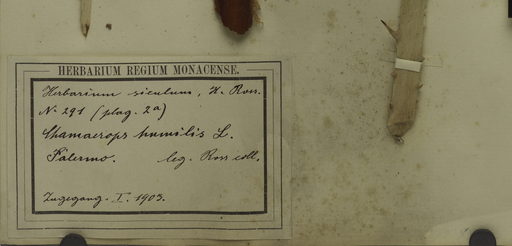 HERBARIUM REGIUM MONACENSE.
Herbarium siculum, H. Ross.
No 291 (plag. 2a)
Chamaerops humilis L.
Palermo. leg. Ross coll.
Zugegang. I. 1903.